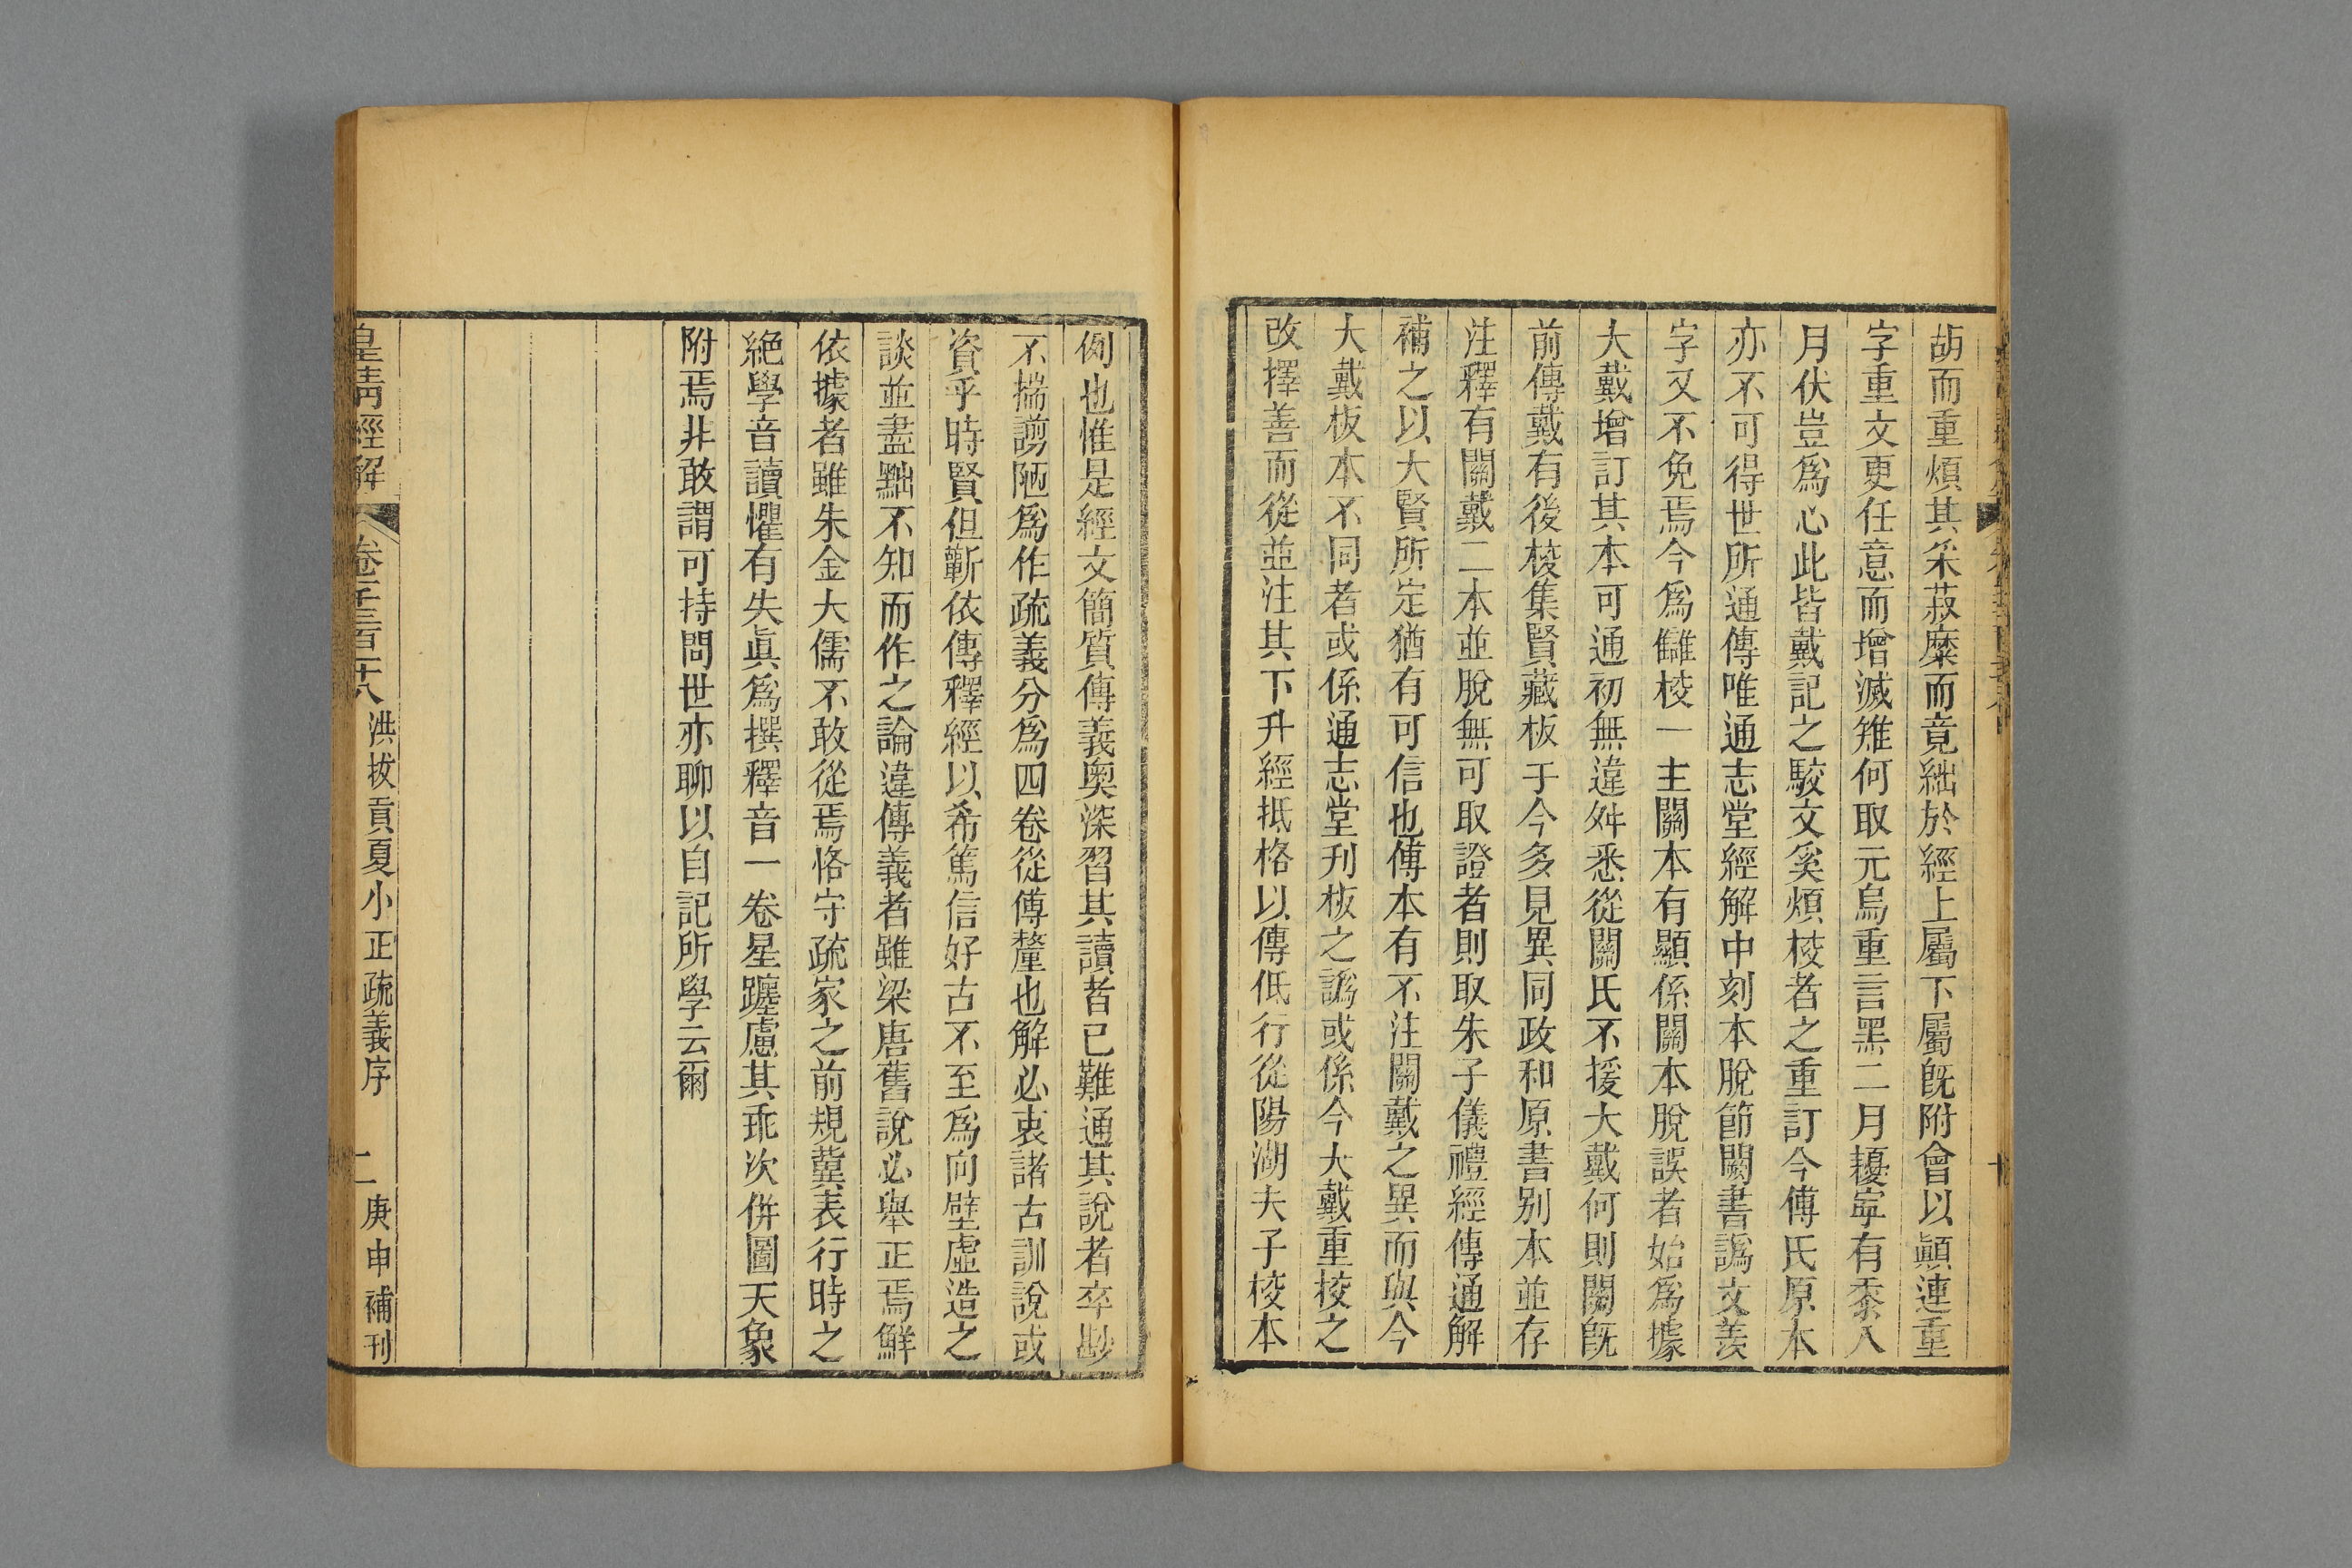 胡而重煩其采菽糜而竟絀於經上屬下屬旣附會以顚連重
字重文更任意而增滅雉何取元烏重言黑二月擾寧有黍入
月伏豈爲心此皆戴記之駮文奚煩校者之重訂今傅氏原本
亦不可得世所通傳唯通志堂經解中刻本脫節闕書譌文羨
字又不免焉今爲讎校一主關本有顯係關本脫誤者始爲據
大戴增訂其本可通初無違舛悉從關氏不援大戴何則關旣
前傳戴有後校集賢藏板于今多見異同政和原書别本並存
注釋有關戴二本並脫無可取證者則取朱子儀禮經傳通解
補之以大賢所定猶有可信也傳本有不注關戴之異而與今
大戴板本不同者或係通志堂刊板之譌或係今大戴重挍之
改擇善而從並注其下升經抵格以傳低行從陽湖夫子校本
例也惟是經文簡質傳義奧深習其讀者已難通其說者卒尠
不揣謭陋爲作疏義分爲四卷從傅釐也解必衷諸古訓說或
資乎時賢但蘄依傳釋經以希篤信好古不至爲向壁虛造之
談並盡黜不知而作之論違傳義者雖梁唐舊說必舉正焉鮮
依據者雖朱金大儒不敢從焉恪守疏家之前規冀表行時之
絕學音讀懼有失眞爲撰釋音一卷星躔慮其乖次倂圖天象
附焉非敢謂可持問世亦聊以自記所學云爾
皇淸經解 卷千三百二十八 洪拔貢夏小正疏義序 二 庚申補刊